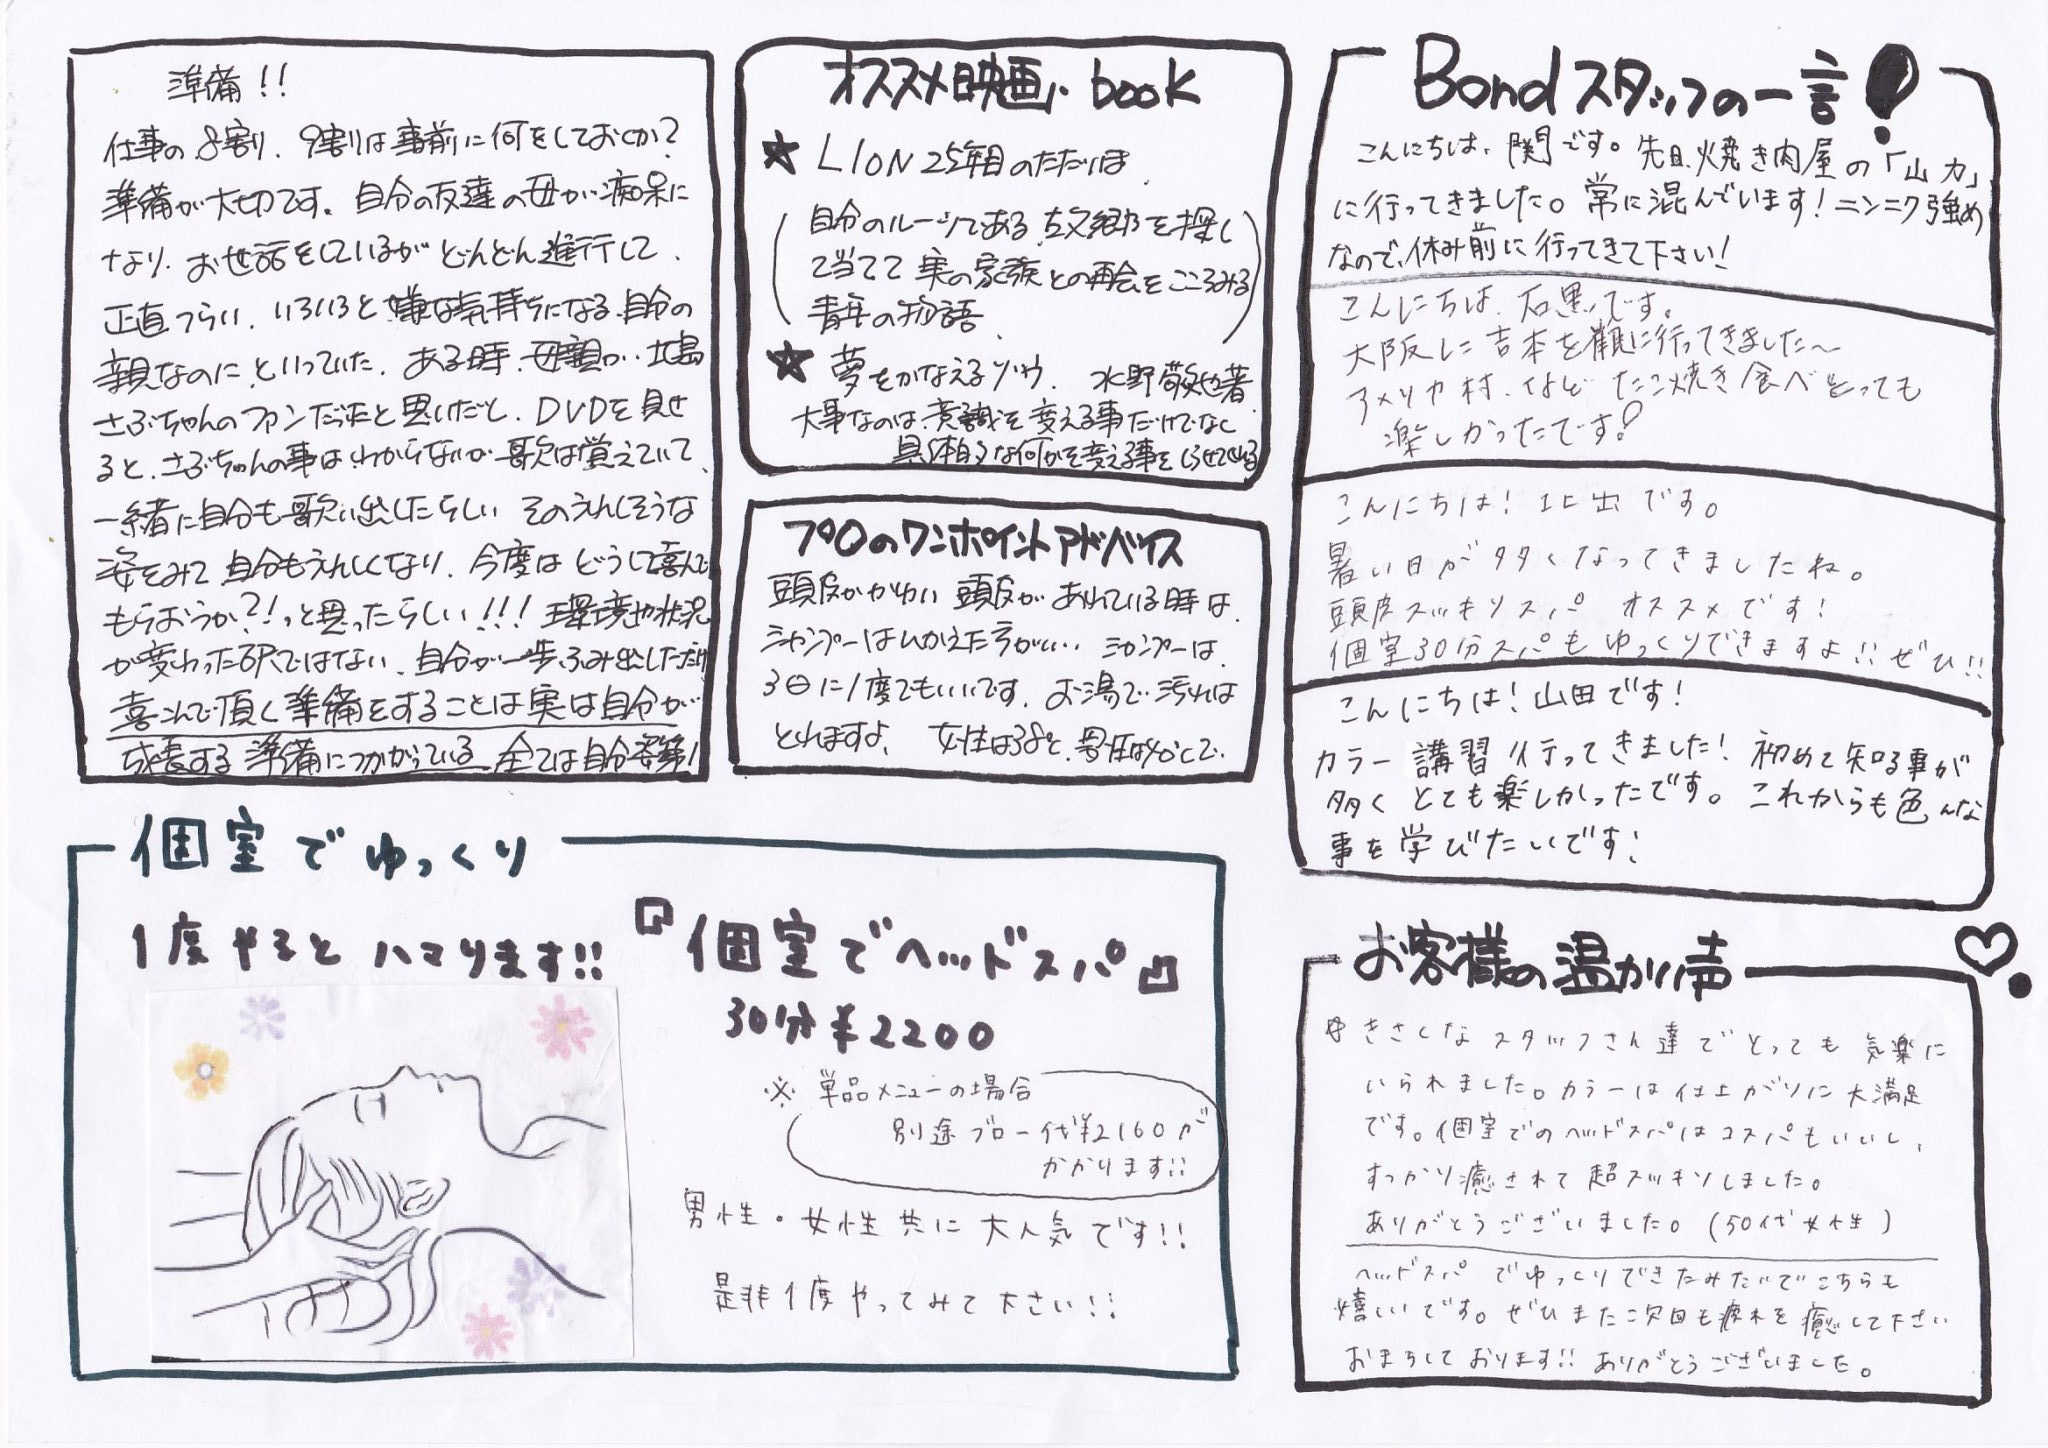 準備!!
仕事の8割り、9割りは事前に何をしておくか?
準備が大切です。自分の友達の母が痴呆に
なり、お世話をしているがどんどん進行して、
正直つらい、いろいろと嫌な気持ちになる、自分の
親なのに、といっていた、ある時、母親が、北島
さぶちゃんのファンだったと思いだし、DVDを見せ
ると、さぶちゃんの事はわからないが歌は覚えていて、
一緒に自分も歌い出したらしい そのうれしそうな
姿をみて自分もうれしくなり、今度はどうして喜んで
もらおうか?!っと思ったらしい!!! 環境や状況
が変わった訳ではない、自分が一歩ふみ出しただけ
喜こんで頂く準備をすることは実は自分が
成長する準備につながっている 全ては自分次第!
オススメ映画、book
★ LION 25年目のただいま
自分のルーツである故郷を探し
て当てて実の家族との再会をこころみる
青年の物語
★ 夢をかなえるゾウ 水野敬也著
大事なのは、意識を変える事だけでなく
具体的な何かを変える事をしらせてくれる
プロのワンポイントアドバイス
頭皮がかゆい 頭皮があれている時は、
シャンプーはひかえた方がいい… シャンプーは、
3日に1度でもいいです、お湯で汚れは
とれますよ、女性は38℃、男性は40℃で、
Bondスタッフの一言!
こんにちは、関です。先日、焼き肉屋の「山力」
に行ってきました。常に混んでいます!ニンニク強め
なので、休み前に行ってきて下さい!
こんにちは、石黒です。
大阪に吉本を観に行ってきました〜
アメリカ村、などたこ焼き食べとっても
楽しかったです!
こんにちは! 出です。
暑い日が多くなってきましたね。
頭皮スッキリスパ オススメです!
個室30分スパもゆっくりできますよ!!ぜひ!!
こんにちは!山田です!
カラー講習行ってきました!初めて知る事が
多くとても楽しかったです。これからも色んな
事を学びたいです!
個室でゆっくり
1度やるとハマります!!
『個室でヘッドスパ』
30分¥2200
※単品メニューの場合
別途ブロー代¥2160が
かかります!!
男性・女性共に大人気です!!
是非1度やってみて下さい!!
お客様の温かい声
きさくなスタッフさん達でとっても気楽に
いられました。カラーは仕上がりに大満足
です。個室でのヘッドスパはコスパもいいし、
すっかり癒されて超スッキリしました。
ありがとうございました。(50代女性)
ヘッドスパでゆっくりできたみたいでこちらも
嬉しいです。ぜひまた次回も疲れを癒して下さい
おまちしております!!ありがとうございました。